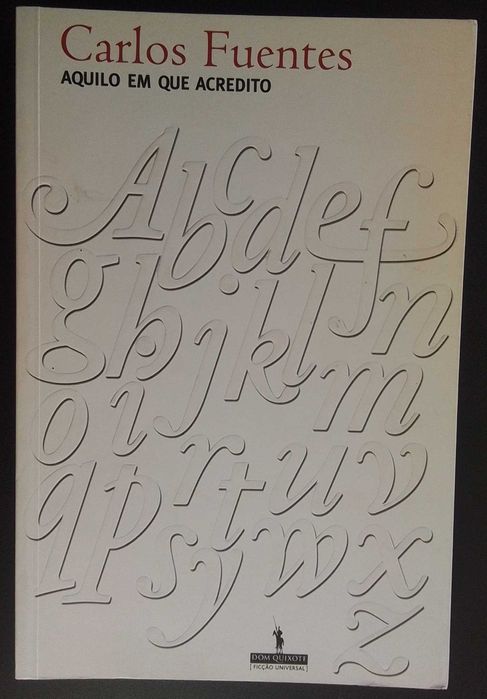 Carlos Fuentes
AQUILO EM QUE ACREDITO
Abcdef
ghijkln
oim
qprtuv
sywx
z
DOM QUIXOTE
FICÇÃO UNIVERSAL